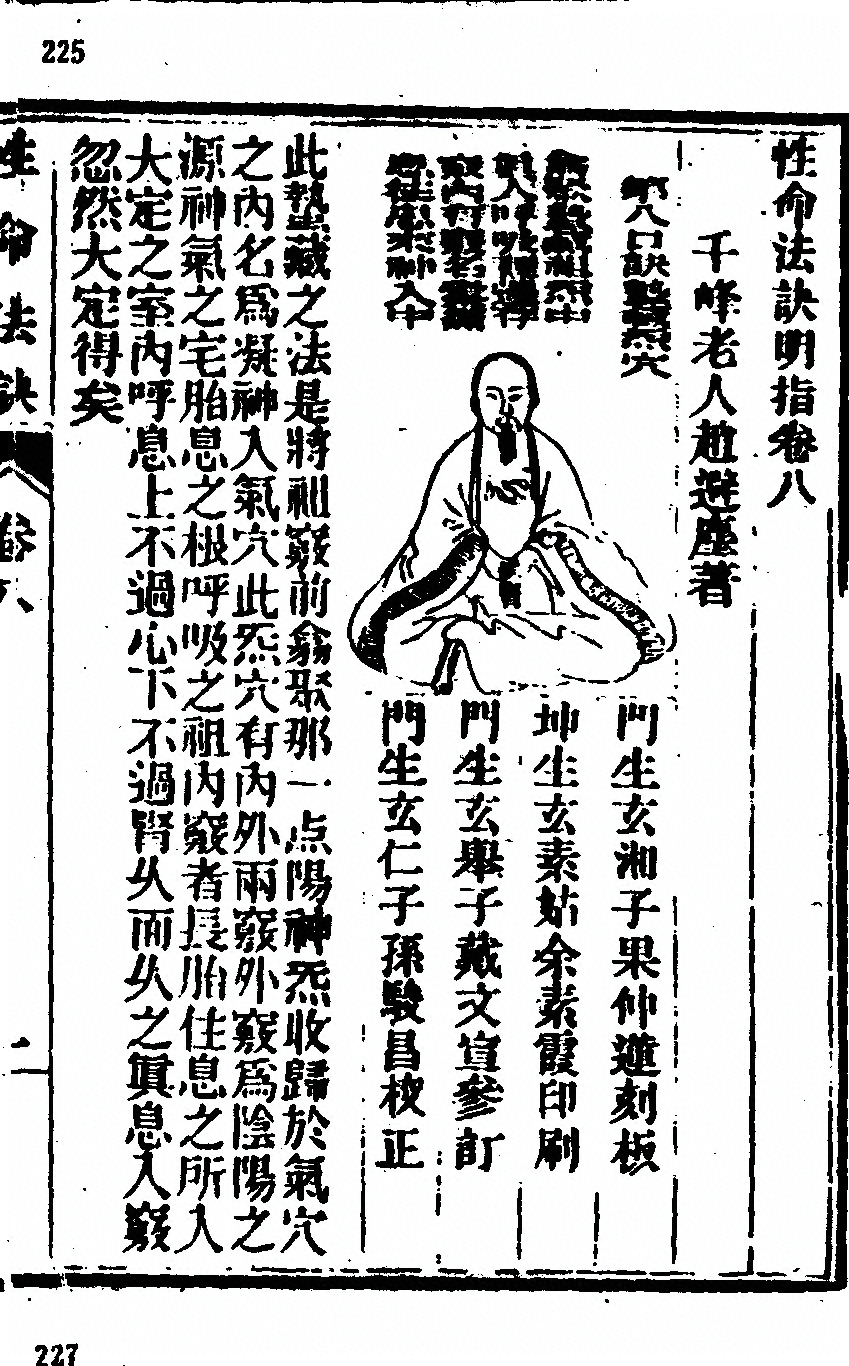 225
性命法訣明指卷八
千峰老人趙避塵著
第八口訣蟄藏炁穴
門生玄湘子果仲蓮刻板
坤生玄素姑余素霞印刷
門生玄舉子戴文宣參訂
門生玄仁子孫駿昌校正
此蟄藏之法是將祖竅前翕聚那一点陽神炁收歸於氣穴
之內名爲凝神入氣穴此炁穴有內外兩竅外竅爲陰陽之
源神氣之宅胎息之根呼吸之祖內竅者長胎住息之所入
大定之室內呼息上不過心下不過腎久而久之眞息入竅
忽然大定得矣
性命法訣
卷八
二
227